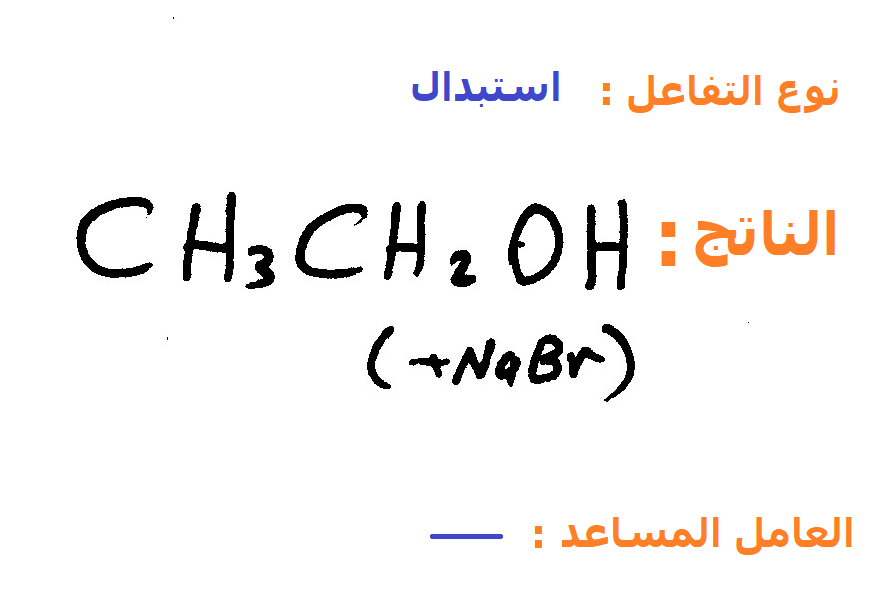 نوع التفاعل : استبدال
الناتج : CH₃CH₂OH
(+NaBr)
العامل المساعد : —